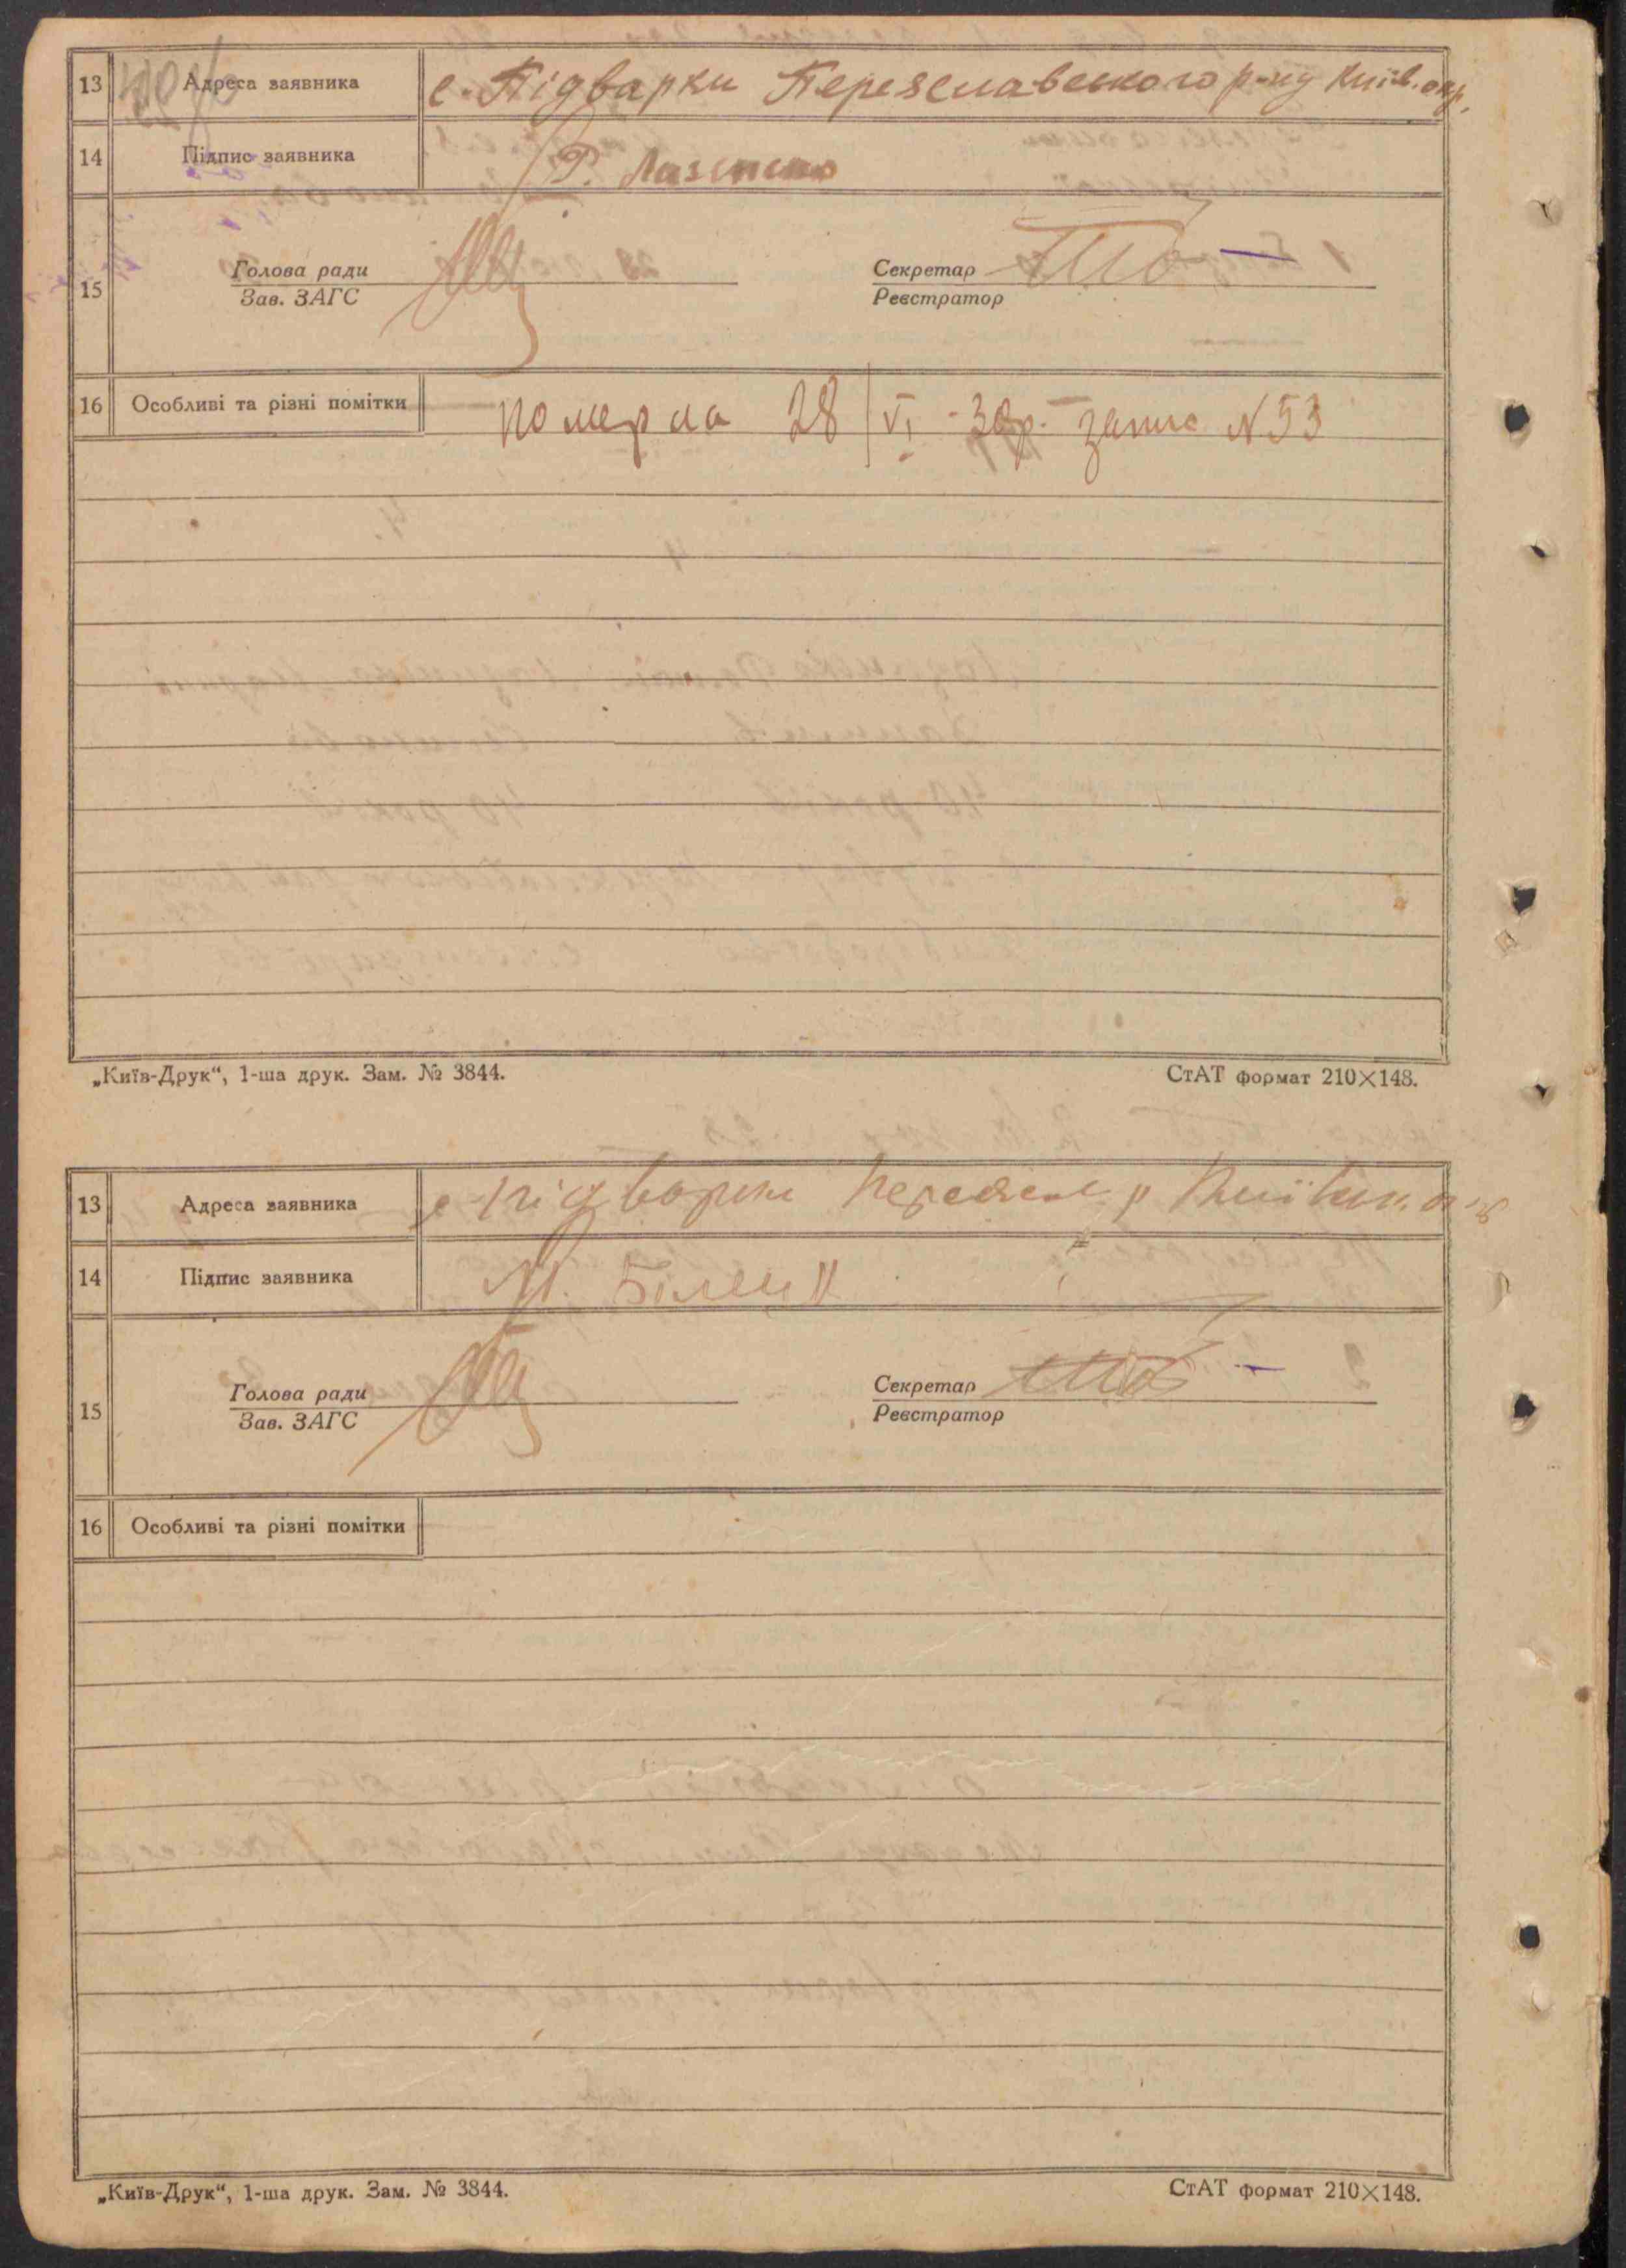 13 Адреса заявника с. Підварки Переяславського р-ну Київ. окр.
14 Підпис заявника Р. Лазенко
15 Голова ради Секретар
Зав. ЗАГС Реєстратор
16 Особливі та різні помітки померла 28/VI 30р. запис N 53
„Київ-Друк“, 1-ша друк. Зам. № 3844. СтАТ формат 210×148.
13 Адреса заявника с. Підварки Переясл р Київськ. окр
14 Підпис заявника М. Білени
15 Голова ради Секретар
Зав. ЗАГС Реєстратор
16 Особливі та різні помітки
„Київ-Друк“, 1-ша друк. Зам. № 3844. СтАТ формат 210×148.